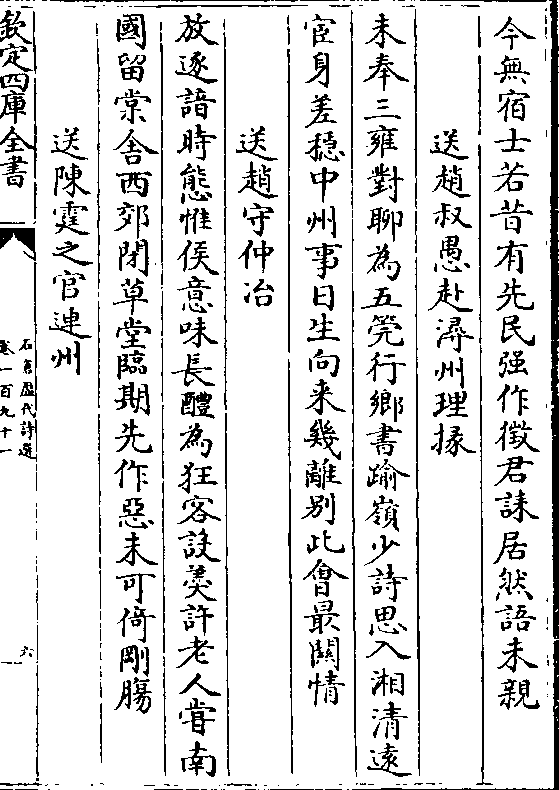 今無宿士若昔有先民强作徵君誄居然語未親
送趙叔愚赴潯州理掾
未奉三雍對聊為五筦行鄉書踰嶺少詩思入湘清遠
宦身差穩中州事日生向来幾離别此會最關情
送趙守仲冶
放逐諳時態惟侯意味長醴為狂客設羮許老人嘗南
國留棠舎西郊閉草堂臨期先作惡未可倚剛腸
送陳霆之官連州
欽定四庫全書
石倉歷代詩選
卷一百九十一
六